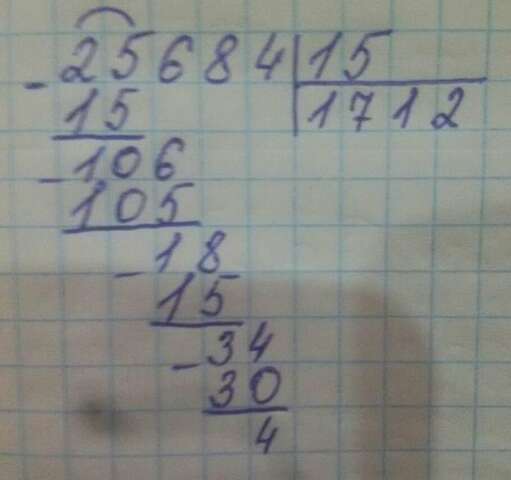 25684 15
- 15 1712
- 106
105
- 18
15
- 34
30
4